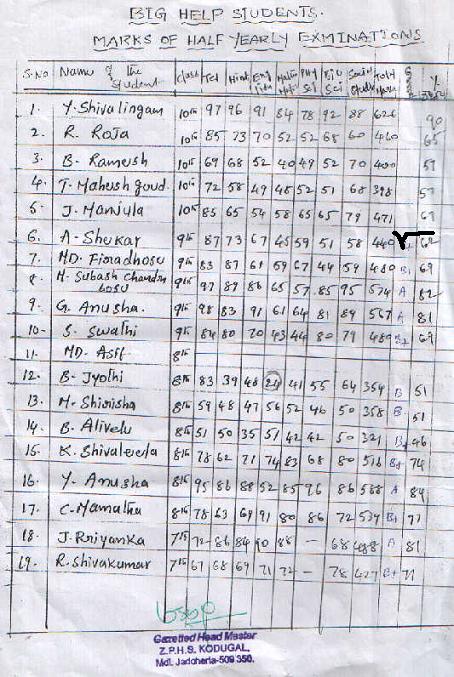 BIG HELP STUDENTS.
MARKS OF HALF YEARLY EXMINATIONS
S.No Name of the Student class Tel Hind Eng Maths Phy Sci Bio Sci Social Stud Total Marks %
1. Y. Shivalingam 10th 97 96 91 84 78 92 88 626 90
2. R. Roja 10th 85 73 70 52 52 68 60 460 65
3. B. Ramesh 10th 69 68 52 40 49 52 70 400 57
4. T. Mahesh goud. 10th 72 58 49 48 52 51 68 398 57
5. J. Manjula 10th 85 65 54 58 65 65 79 471 67
6. A. Shekar 9th 87 73 67 45 59 51 58 440 62
7. MD. Firadhosu 9th 83 87 61 59 67 44 59 480 B1 69
8. H. Subash chandra bosu 9th 97 89 86 65 57 85 95 574 A 82
9. G. Anusha. 9th 98 83 91 61 64 81 89 567 A 81
10. S. Swathi 9th 84 80 70 43 44 80 79 480 B2 69
11. MD. Asif 8th
12. B. Jyothi 8th 83 39 48 24 41 55 64 354 B 51
13. M. Shirisha 8th 59 48 47 56 52 46 50 358 B 51
14. B. Alivelu 8th 51 50 35 51 42 42 50 321 B 46
15. K. Shivaleela 8th 78 62 71 74 83 68 80 516 B+ 74
16. Y. Anusha 8th 95 86 88 52 85 96 86 588 A 84
17. C. Mamatha 8th 78 63 69 91 80 86 72 539 B+ 77
18. J. Priyanka 7th 72 86 84 90 88 - 68 488 A 81
19. R. Shivakumar 7th 67 68 69 71 72 - 78 427 B+ 71
Gazetted Head Master
Z.P.H.S. KODUGAL,
Mdl. Jadcherla-509 350.